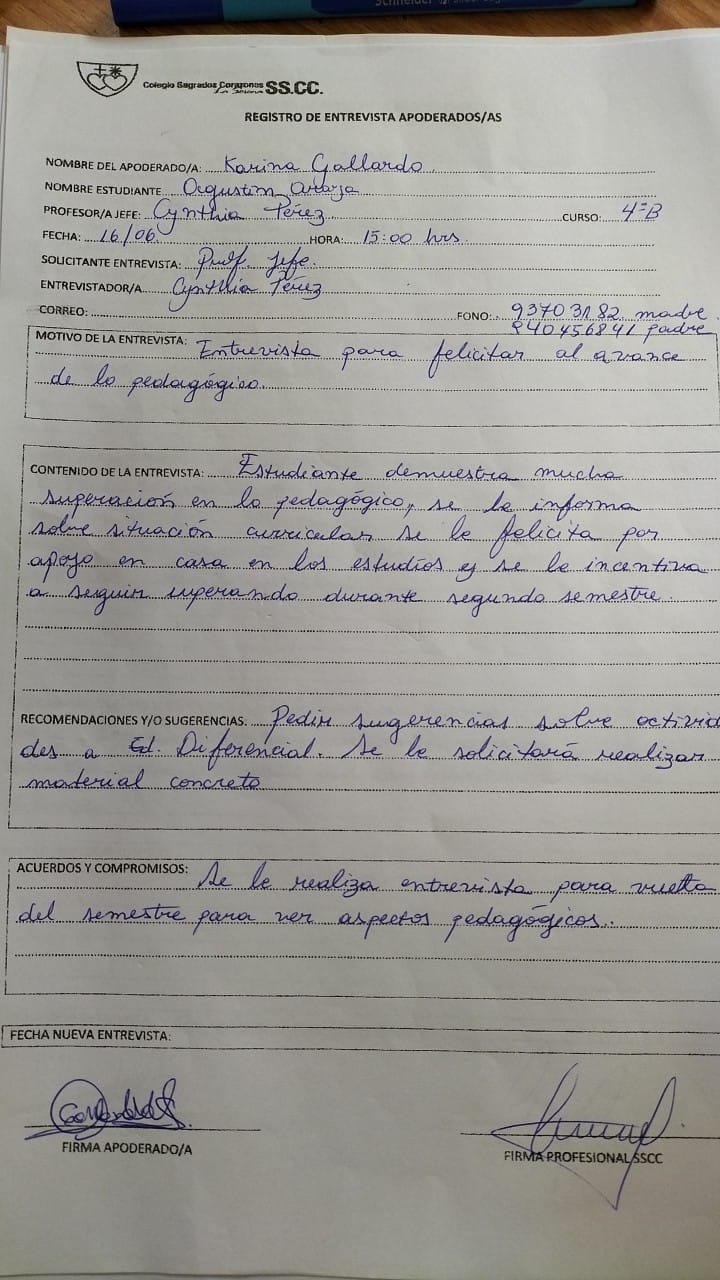 Schneider
Colegio Sagrados Corazones SS.CC.
La Serena
REGISTRO DE ENTREVISTA APODERADOS/AS
NOMBRE DEL APODERADO/A: Karina Gallardo
NOMBRE ESTUDIANTE
PROFESOR/A JEFE: Cynthia Pérez CURSO: 4°B
FECHA: 16/06. HORA: 15:00 hrs.
SOLICITANTE ENTREVISTA: Prof. Jefe.
ENTREVISTADOR/A Cynthia Pérez
CORREO: FONO: 93703182 madre
940456841 padre
MOTIVO DE LA ENTREVISTA: Entrevista para felicitar al avance
de lo pedagógico.
CONTENIDO DE LA ENTREVISTA: Estudiante demuestra mucha
superación en lo pedagógico, se le informa
sobre situación curricular se le felicita por
apoyo en casa en los estudios y se le incentiva
a seguir superando durante segundo semestre.
RECOMENDACIONES Y/O SUGERENCIAS. Pedir sugerencias sobre activida
des a Ed. Diferencial. Se le solicitará realizar
material concreto
ACUERDOS Y COMPROMISOS: Se le realiza entrevista para vuelta
del semestre para ver aspectos pedagógicos.
FECHA NUEVA ENTREVISTA:
FIRMA APODERADO/A
FIRMA PROFESIONAL SSCC